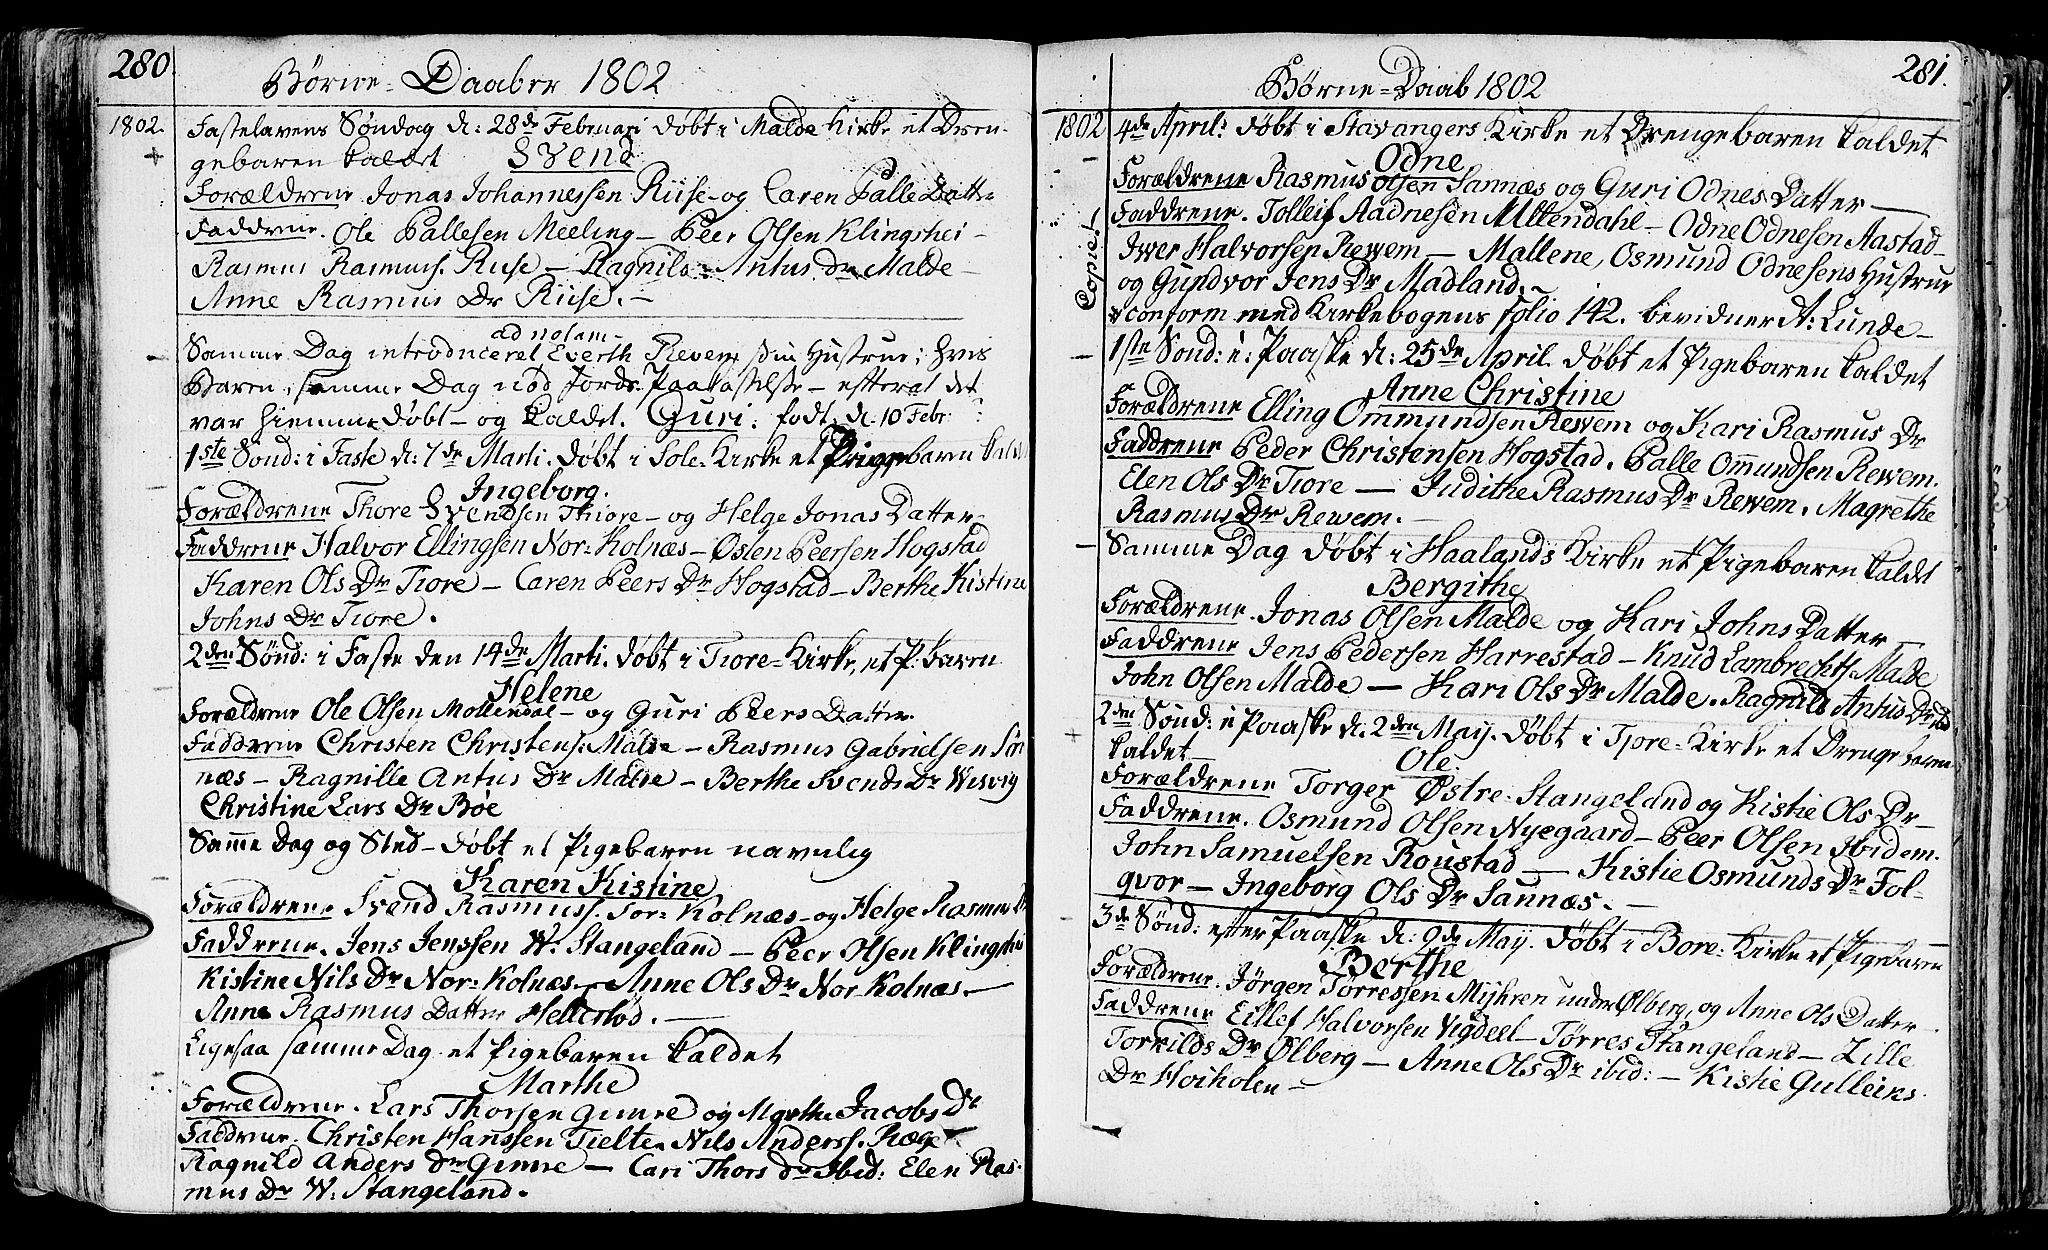 280
Børne-Daaber 1802
1802.
Fastelavens Søndag d: 28de Februari døbt i Malde Kirke et Dren-
gebaren kaldet Svend
Forældrene Jonas Johannessen Riise - og Caren Palle Datter
Faddrene. Ole Pallesen Meeling - Peer Olsen Klingshei -
Rasmus Rasmuss. Riise - Ragnild Antus dr Malde -
Anne Rasmus Dr Riise. -
ad notam -
Samme Dag introduceret Everth Revem sin Hustrue; hvis
Baren, samme Dag nød Jords Paakastelse - efterat det
var hiemme døbt - og kaldet. Guri: født d. 10 Febr:
1ste Sønd: i Faste d: 7de Marti. døbt i Sole-Kirke et Piggebaren kaldet
Ingeborg.
Forældrene Thore Svendsen Thiore - og Helge Jonas Datter
Faddrene Halvor Ellingsen Nor-Kolnæs - Østen Peersen Hogstad
Karen Ols Dr Tiore - Caren Peers Dr Hogstad - Berthe Kistine
Johns Dr Tiore.
2den Sønd: i Faste den 14de Marti. døbt i Tiore-Kirke, et P: baren
Helene
Forældrene Ole Olsen Mollendal - og Guri Peers Datter.
Faddrene Christen Christens. Malde - Rasmus Gabrielsen Søn
næs - Ragnille Antus Dr Malde - Berthe Svends Dr Wisvig
Christine Lars Dr Bøe
Samme Dag og Sted - døbt et Pigebaren navnlig
Karen Kistine
Forældrene Svend Rasmuss. Sør-Kolnæs - og Helge Rasmus Dr
Faddrene. Jens Jenssen W: Stangeland - Peer Olsen Klingshei
Kistine Nils Dr Nor-Kolnæs - Anne Ols Dr Nor Kolnæs. -
Anne Rasmus Datter Hellestød. -
Ligesaa samme Dag et Pigebaren kaldet
Marthe
Forældrene. Lars Thorsen Gimre og Marthe Jacobs Dr
Faddrene. Christen Hanssen Tielte. Nils Anderss. Ræge
Ragnild Anders dr Gimre - Cari Thors dr Ibid: Elen Ras-
mus Dr W: Stangeland.
281.
Børne-Daab 1802
1802
Copie!
4de April: døbt i Stavangers Kirke et Drengebaren kaldet
Odne
Forældrene Rasmus Olsen Sannæs og Guri Odnes Datter -
Faddrene. Tolleif Aadnesen Multendahl - Odne Odnesen Aastad -
Iwer Halvorsen Rewem - Mallene, Osmund Odnesens Hustrue
og Gundvor Jens Dr Madland. -
conform med Kirkebogens Folio 142. bevidner A: Lunde -
1ste Sønd: i: Paaske d: 25de April. døbt et Pigebaren kaldet
Anne Christine
Forældrene Elling Ommundsen Rewem og Kari Rasmus Dr
Faddrene Peder Christensen Hogstad. Palle Ommundsen Rewem.
Elen Ols Dr Tiore - Judithe Rasmus Dr Rewem. Magrethe
Rasmus Dtr Rewem. -
Samme Dag døbt i Haalands Kirke et Pigebaren kaldet
Bergithe
Forældrene. Jonas Olsen Malde og Kari Johns Datter -
Faddrene Jens Pedersen Harrestad - Knud Lambrechts. Malde
John Olsen Malde - Kari Ols Dr Malde. Ragnild Antus Dr ibid
2den Sønd: i Paaske d: 2den May. døbt i Tjore-Kirke et Drengebaren
kaldet -
Ole.
Forældrene Torger Østre-Stangeland og Kistie Ols Dr -
Faddrene. Osmund Olsen Nyegaard - Peer Olsen Ibidem.
John Samuelsen Roustad - Kistie Osmunds Dr Fol-
qvor - Ingeborg Ols Dr Sannæs. -
3de Sønd: efter Paaske d: 9de May. døbt i Bore-Kirke et Pigebaren
Berthe
Forældrene. Jørgen Tørressen Mijhren under Ølberg, og Anne Ols Datter
Faddrene Eillef Halvorsen Vigdeel - Tørres Stangeland - Zille
Torkilds Dr Ølberg - Anne Ols Dr ibid: - Kistie Gulleiks
Dr Hoiholen -